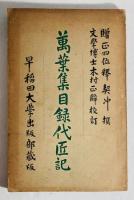 贈正四位釋契沖撰
文學博士木村正辭校訂
萬葉集目録代匠記
早稻田大學出版部藏版